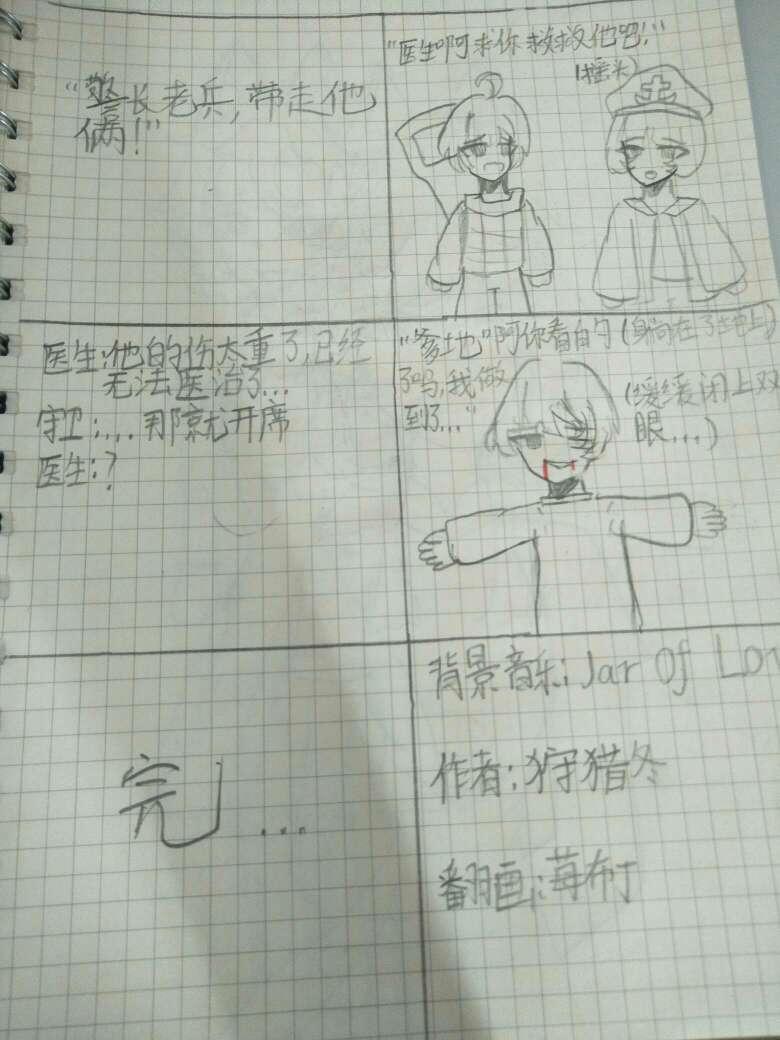 "警长老兵,带走他
俩!"
"医生啊求你救救他吧!"
(摇头)
医生:他的伤太重了,已经
无法医治了...
守卫:...那就开席
医生:?
"爹地"啊你看自
了吗,我做
到了..."
(身躺在了
(缓缓闭上双
眼...)
完...
背景音乐:Jar Of
作者:狩猎冬
翻画:莓布丁